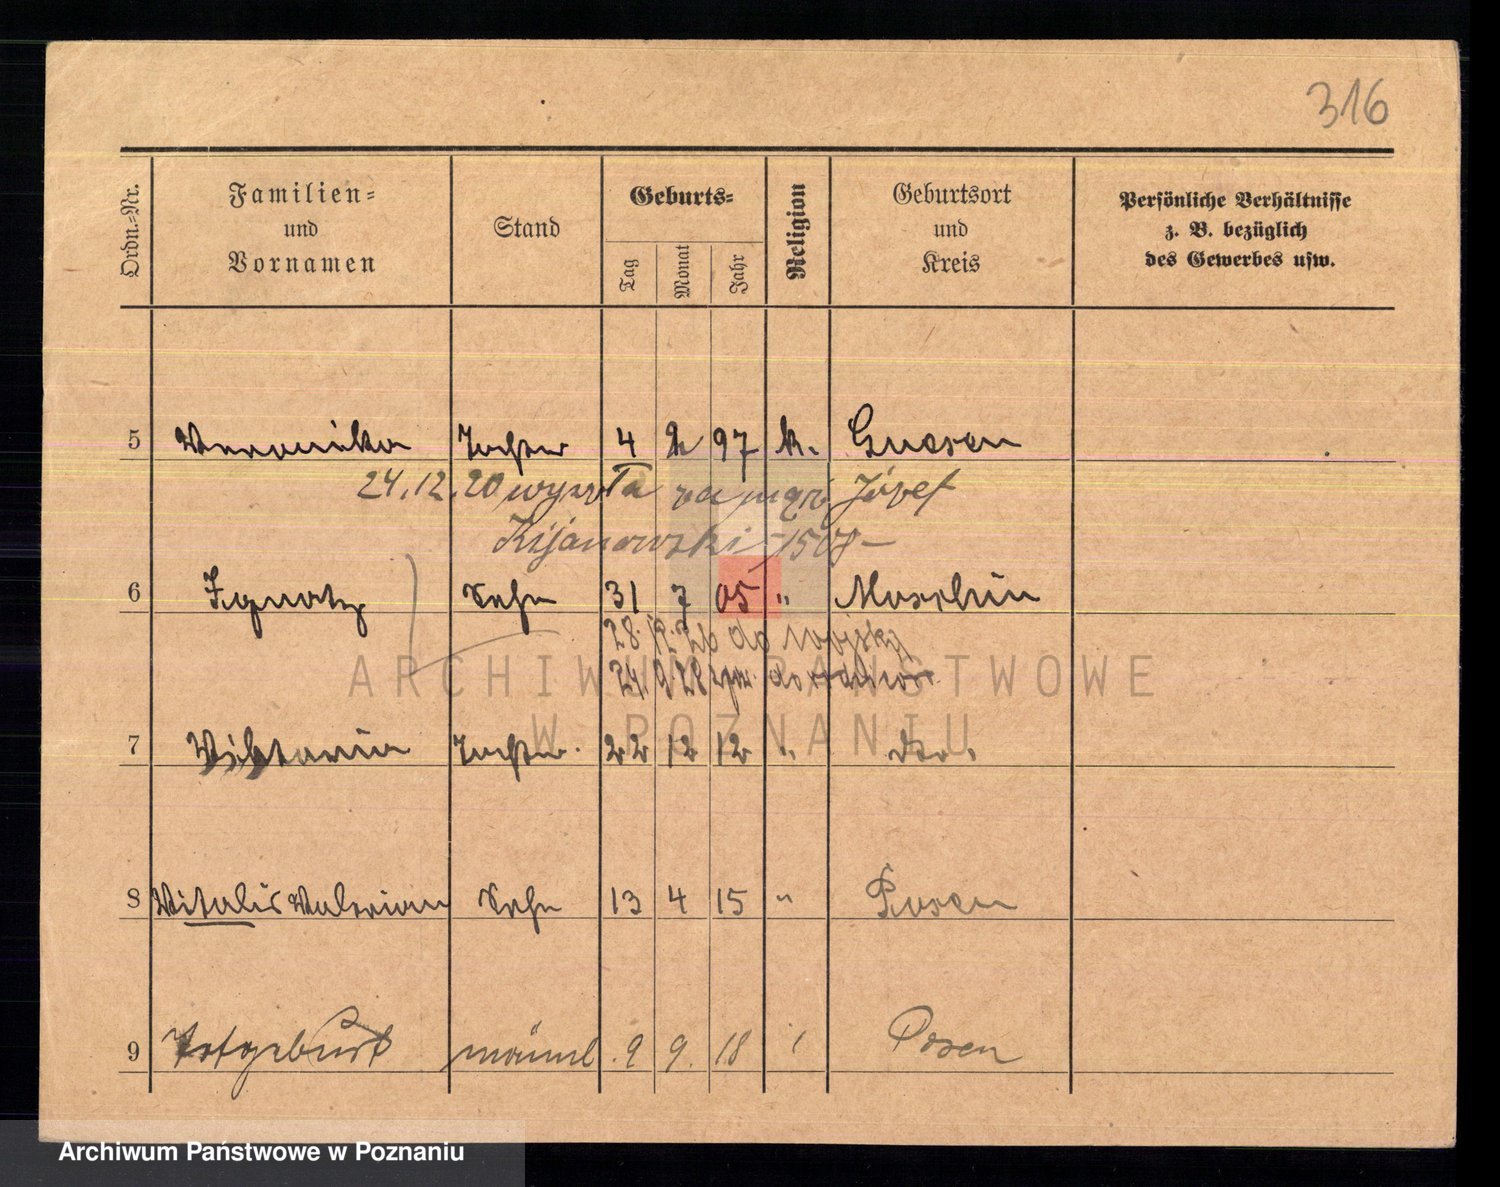 316
Ordn.-Nr.
Familien-
und
Vornamen
Stand
Geburts-
Tag
Monat
Jahr
Religion
Geburtsort
und
Kreis
Persönliche Verhältnisse
z. B. bezüglich
des Gewerbes usw.
5 Veronika Tochter 4 2 97 k. Gnesen
24.12.20 wyszła za mąż Józef
Kijanowski - 1508 -
6 Ignatz Sohn 31 7 05 " Moschin
28.12.26 do wojska
24.9.28
ARCHIWUM PAŃSTWOWE
W POZNANIU
7 Viktoria Tochter. 22 12 12 " do.
8 Vitalis Valerian Sohn 13 4 15 " Posen
9 Totgeburt männl. 9 9. 18 Posen
Archiwum Państwowe w Poznaniu